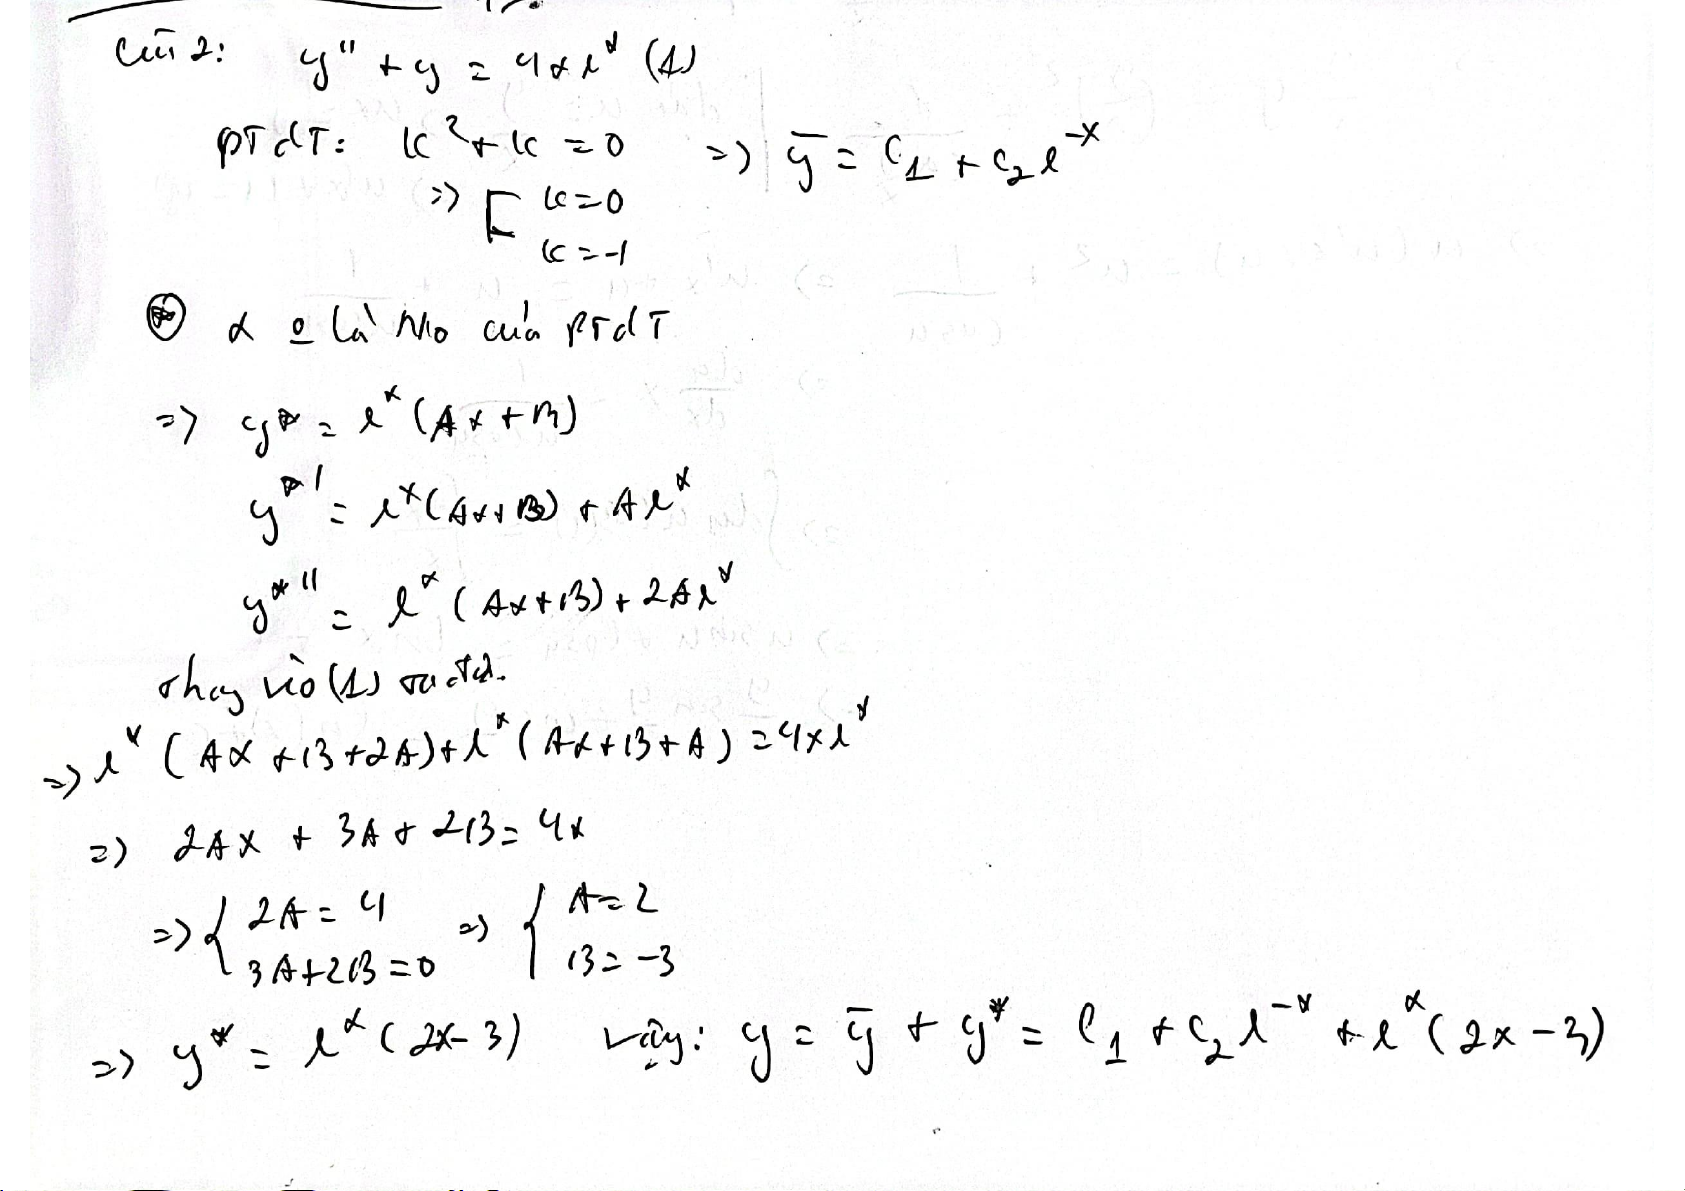 Câu 2: y'' + y = 4xe^x (1)
PTĐT: k^2 + k = 0 => ȳ = C_1 + C_2 e^-x
=> [ k = 0
k = -1
α o là No của PTĐT
=> y* = e^x (Ax + B)
y*' = e^x (Ax + B) + Ae^x
y*'' = e^x (Ax + B) + 2Ae^x
Thay vào (1) ta
=> e^x (Ax + B + 2A) + e^x (Ax + B + A) = 4xe^x
=> 2Ax + 3A + 2B = 4x
=> { 2A = 4 => { A = 2
3A + 2B = 0 B = -3
=> y* = e^x (2x - 3) Vậy: y = ȳ + y* = C_1 + C_2 e^-x + e^x (2x - 3)